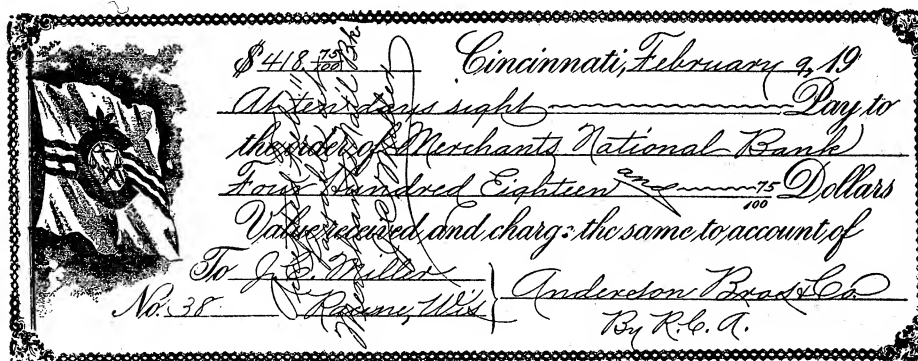 $ 418 75/100 Cincinnati, February 9, 19
At ten days sight Pay to
the order of Merchants National Bank
Four Hundred Eighteen and 75/100 Dollars
Value received and charge the same to account of
To J. C. Miller
No. 38 Racine, Wis
Anderson Bros & Co
By R. C. A.